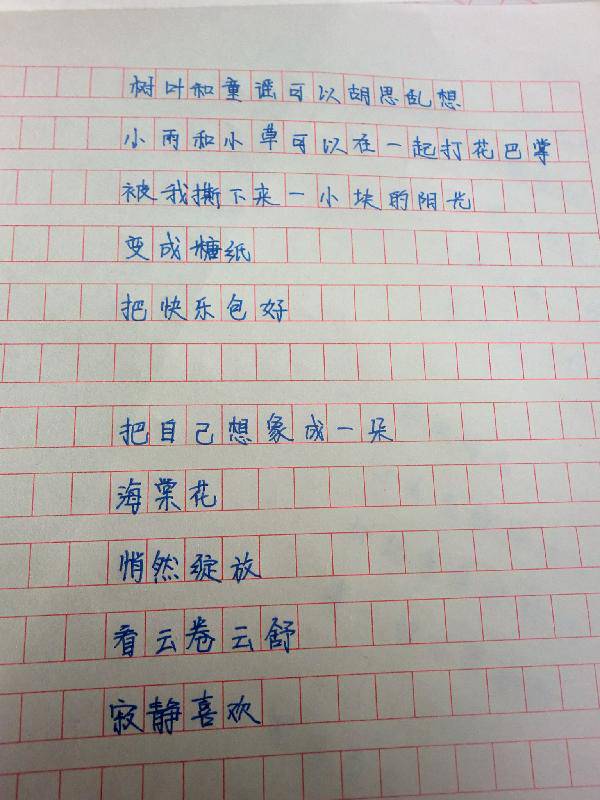 树叶和童谣可以胡思乱想
小雨和小草可以在一起打花巴掌
被我撕下来一小块的阳光
变成糖纸
把快乐包好
把自己想象成一朵
海棠花
悄然绽放
看云卷云舒
寂静喜欢